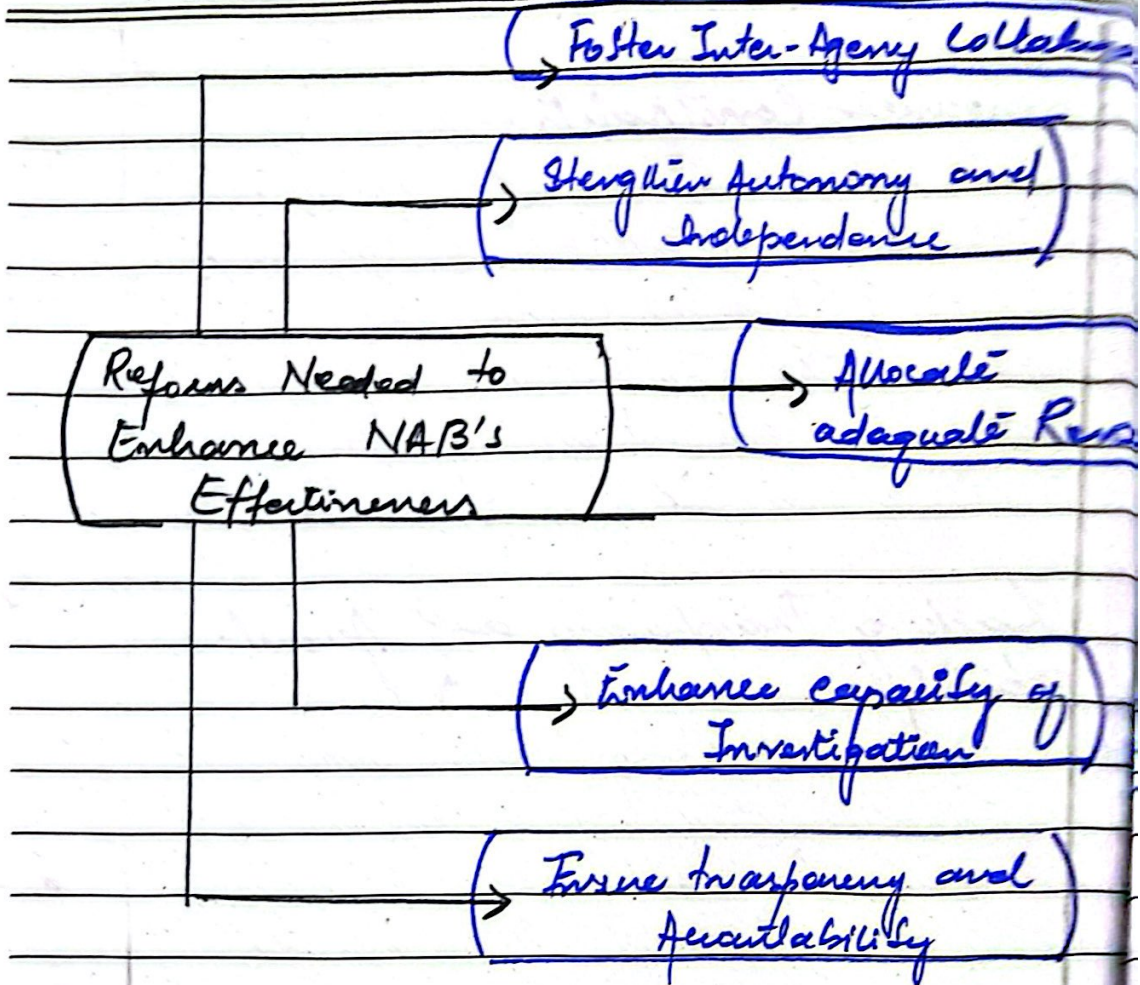 Foster Inter-Agency
Stengthen Autonomy and
Independance
Reforms Needed to
Enhance NAB's
Effectiveness
Allocate
adaquate
Enhance capacity of
Investigation
Ensure trasparency and
Accoutlability